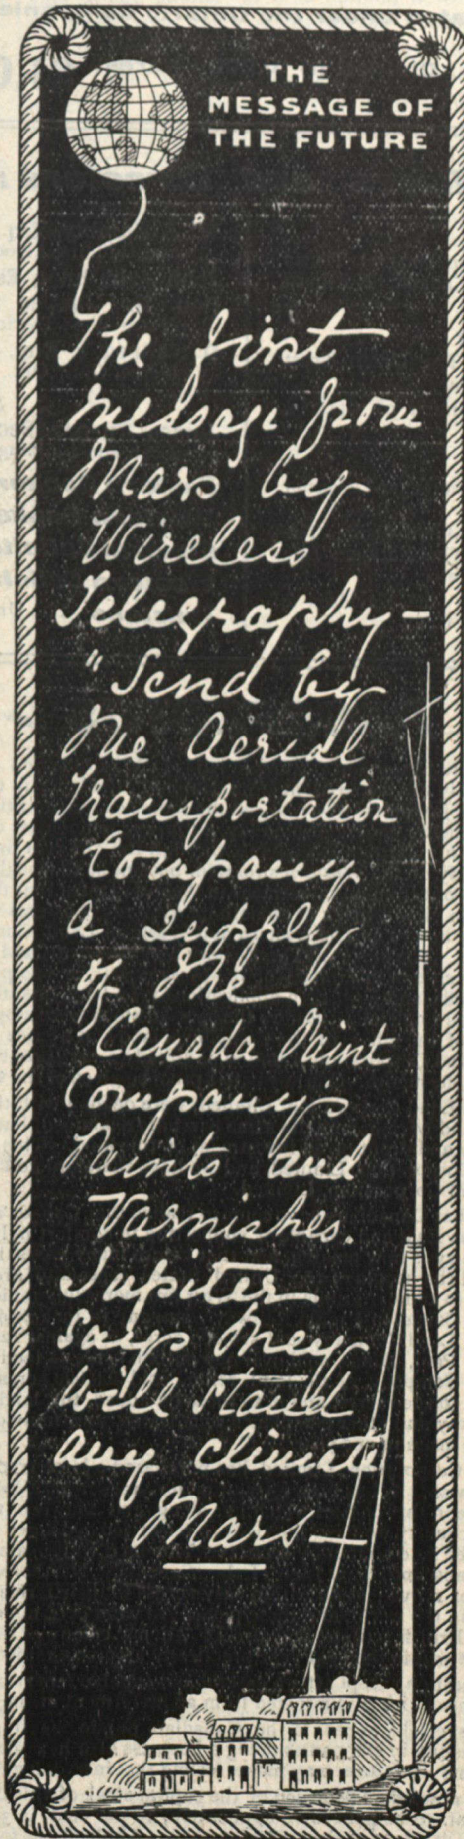 THE
MESSAGE OF
THE FUTURE
The first
message from
Mars by
Wireless
Telegraphy –
"Send by
the Aerial
Transportation
Company
a supply
of the
Canada Paint
Company's
Paints and
Varnishes.
Jupiter
says they
will stand
any climate
Mars —